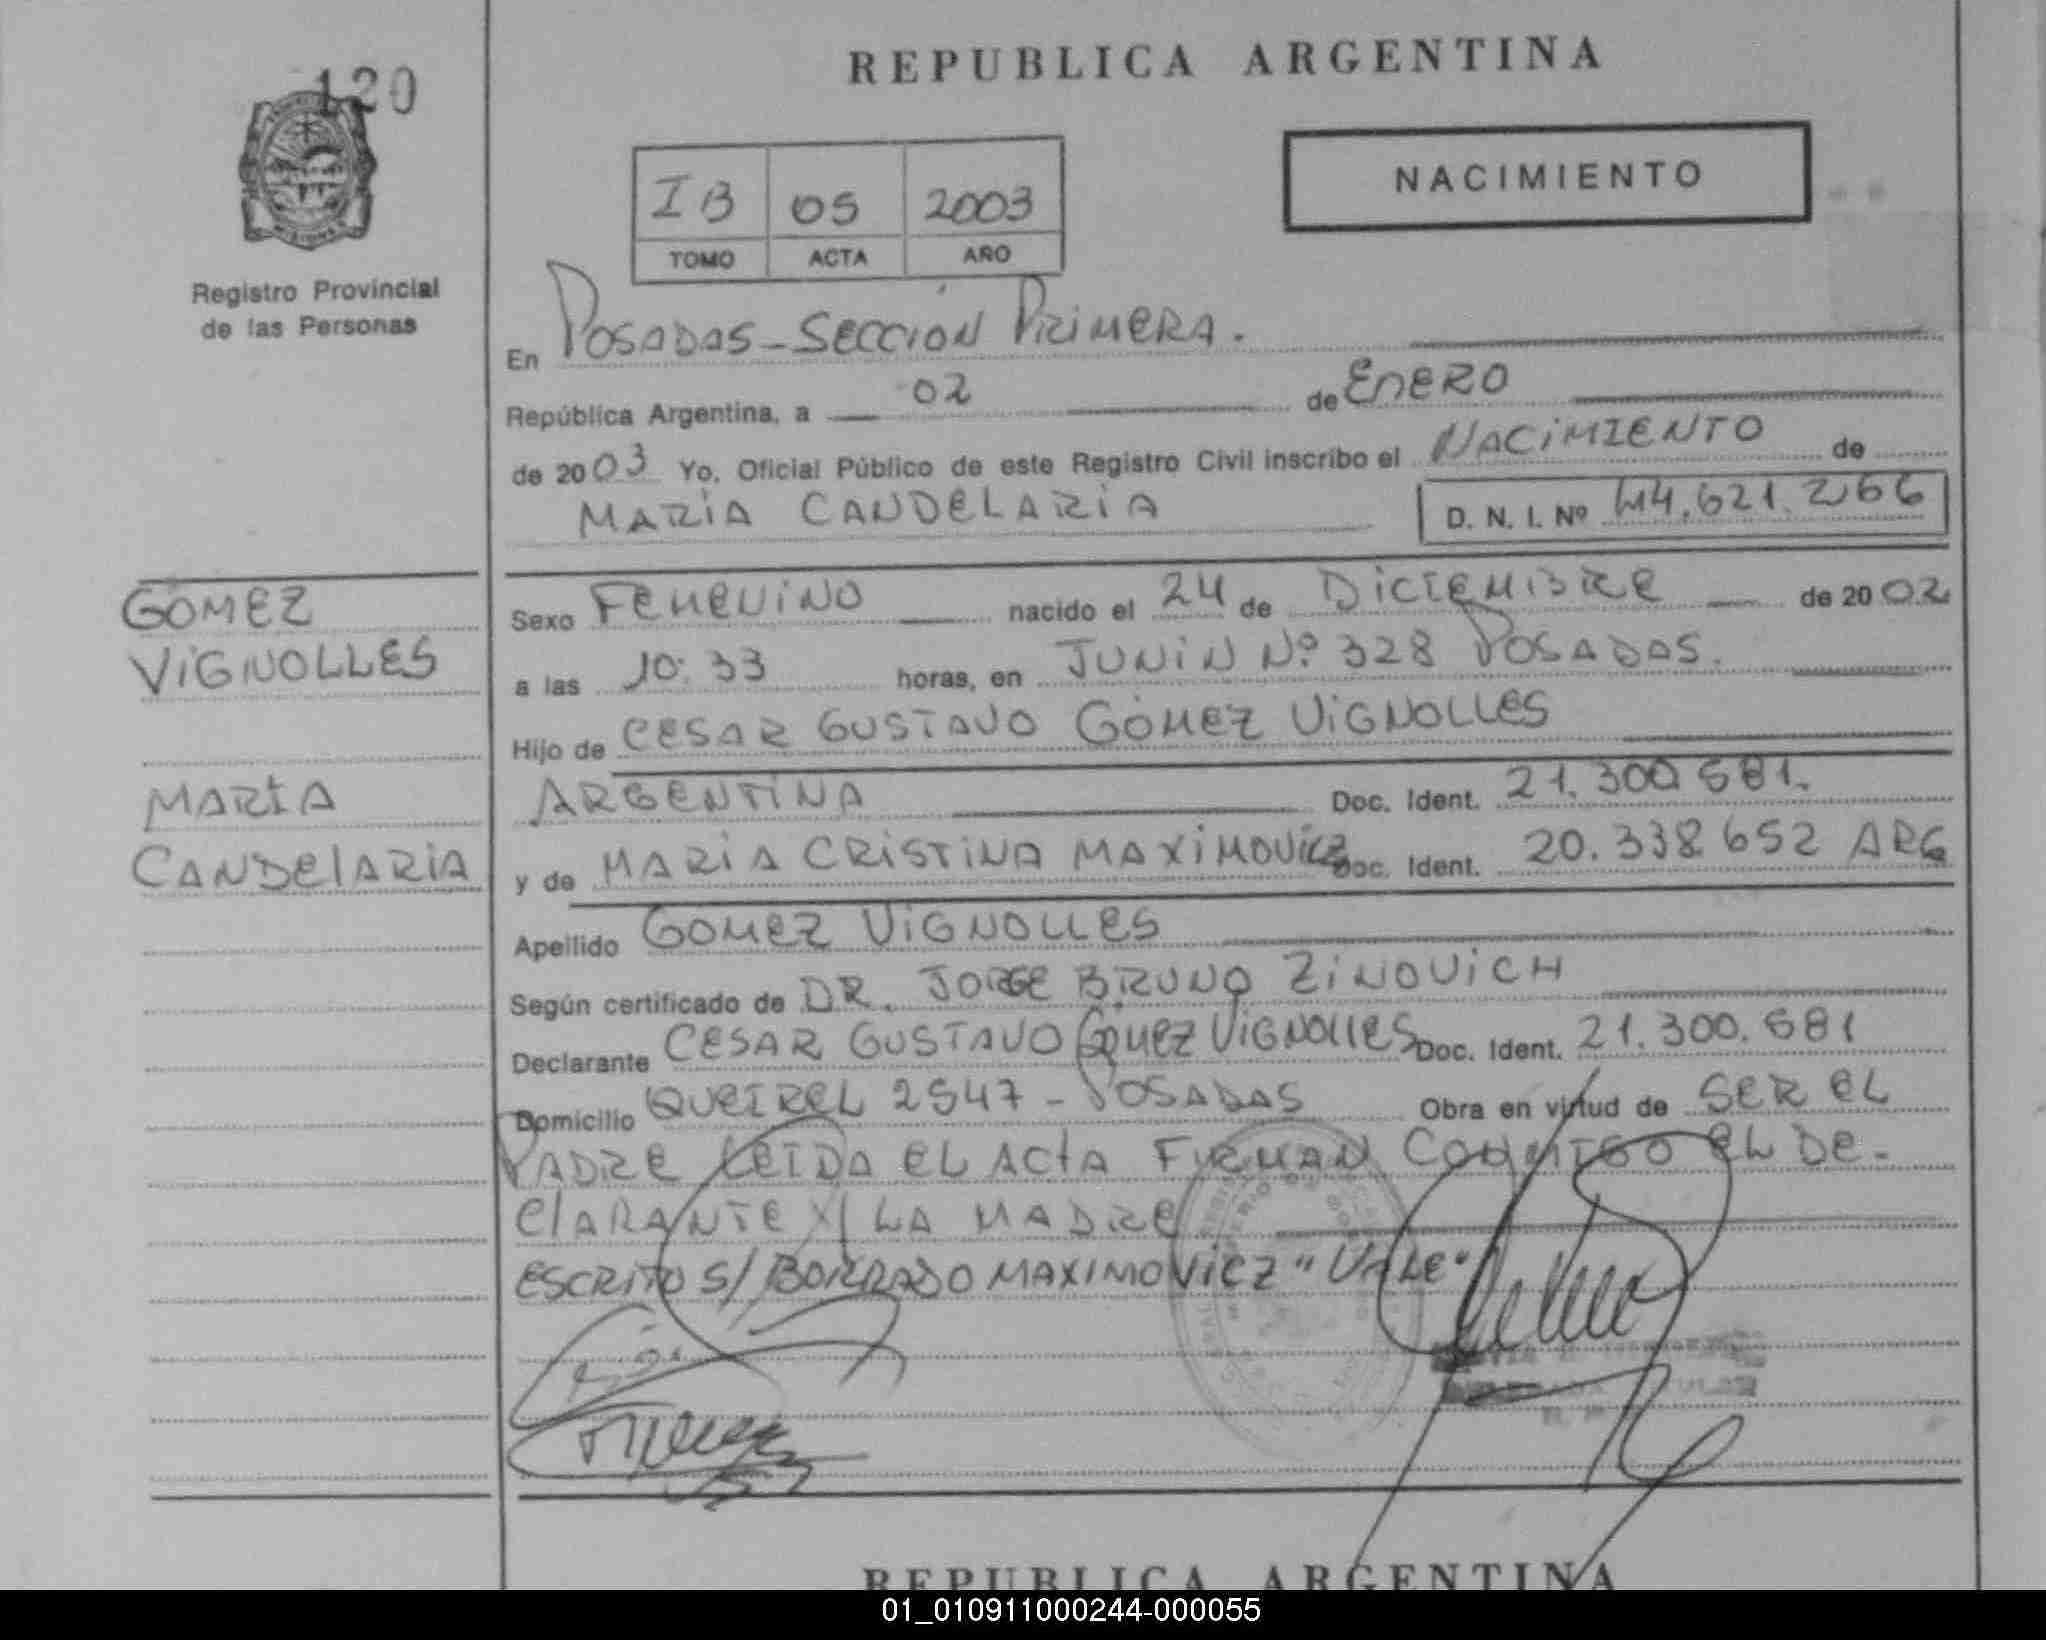 120
REPUBLICA ARGENTINA
NACIMIENTO
IB 05 2003
TOMO ACTA AÑO
Registro Provincial
de las Personas
En POSADAS - SECCIÓN PRIMERA.
República Argentina, a 02 de ENERO
de 2003 Yo, Oficial Público de este Registro Civil inscribo el NACIMIENTO de
MARÍA CANDELARIA D. N. I. Nº 44.621.266
GOMEZ
VIGNOLLES
MARÍA
CANDELARIA
Sexo FEMENINO nacido el 24 de DICIEMBRE de 2002
a las 10:33 horas, en JUNIN Nº 328 POSADAS.
Hijo de CESAR GUSTAVO GÓMEZ VIGNOLLES
ARGENTINA Doc. Ident. 21.300.581.
y de MARIA CRISTINA MAXIMOVICZ Doc. Ident. 20.338.652 ARG
Apellido GOMEZ VIGNOLLES
Según certificado de DR. JORGE BRUNO ZINOVICH
Declarante CESAR GUSTAVO GOMEZ VIGNOLLES Doc. Ident. 21.300.581
Domicilio QUEIREL 2547 - POSADAS Obra en virtud de SER EL
PADRE LEIDA EL ACTA FIRMAN CONMIGO EL DE-
CLARANTE Y LA MADRE
ESCRITO S/ BORRADO MAXIMOVICZ "VALE"
REPUBLICA ARGENTINA
01_010911000244-000055